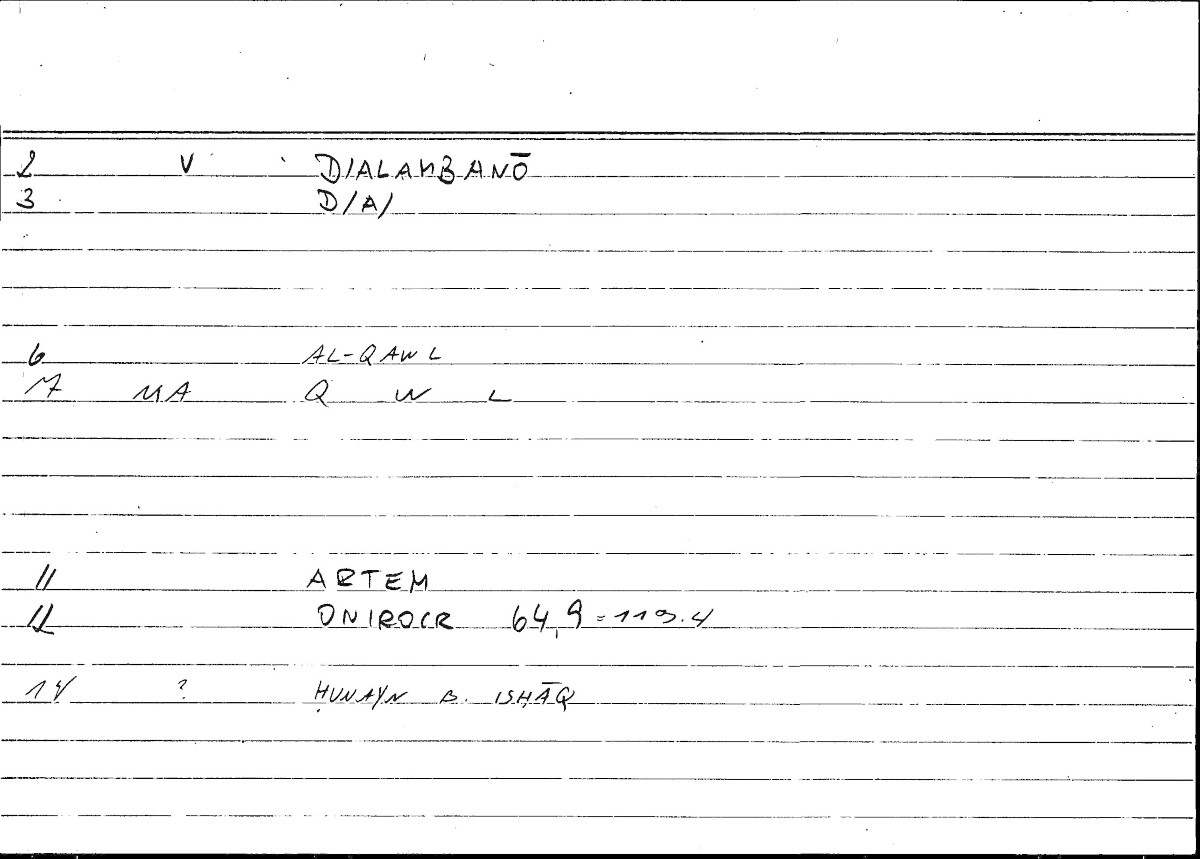 2 V DIALAMBANŌ
3 D/A/
6 AL-QAWL
7 MA Q W L
11 ARTEM
12 ONIROCR 64,9 = 119.4
14 ? ḤUNAYN B. ISḤĀQ